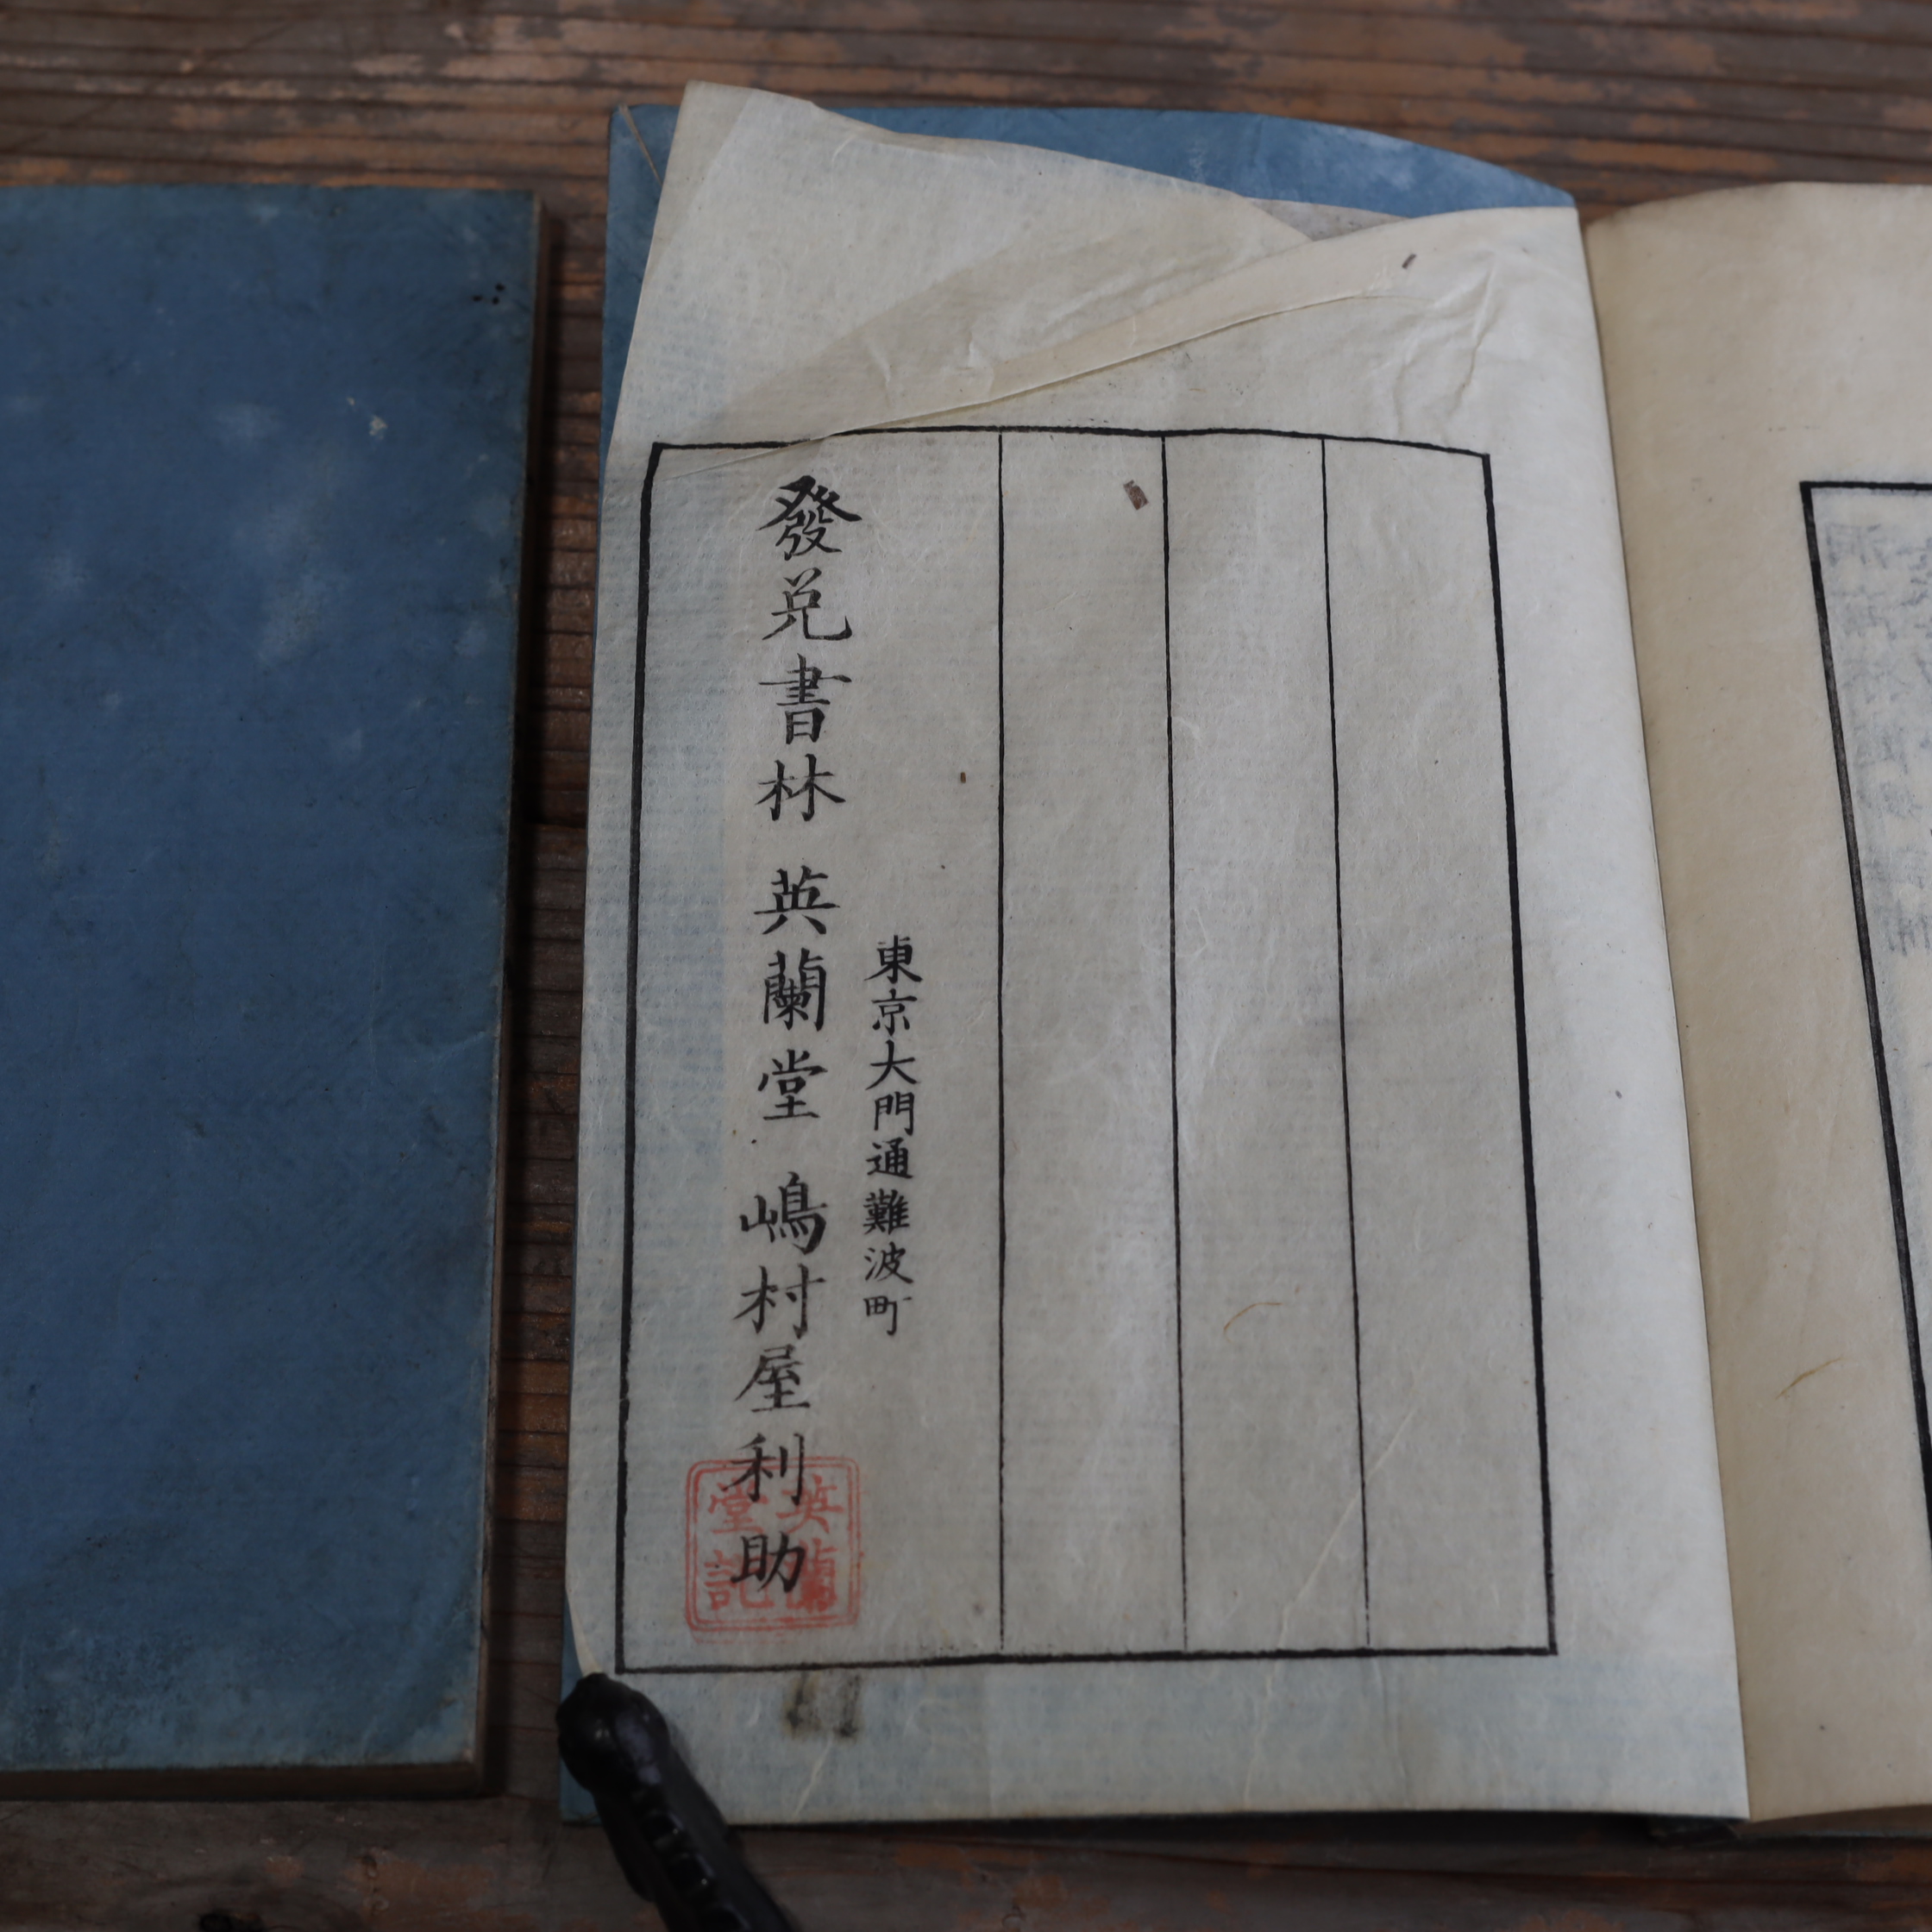 東京大門通難波町
發兌書林 英蘭堂 嶋村屋利助
英蘭
堂記